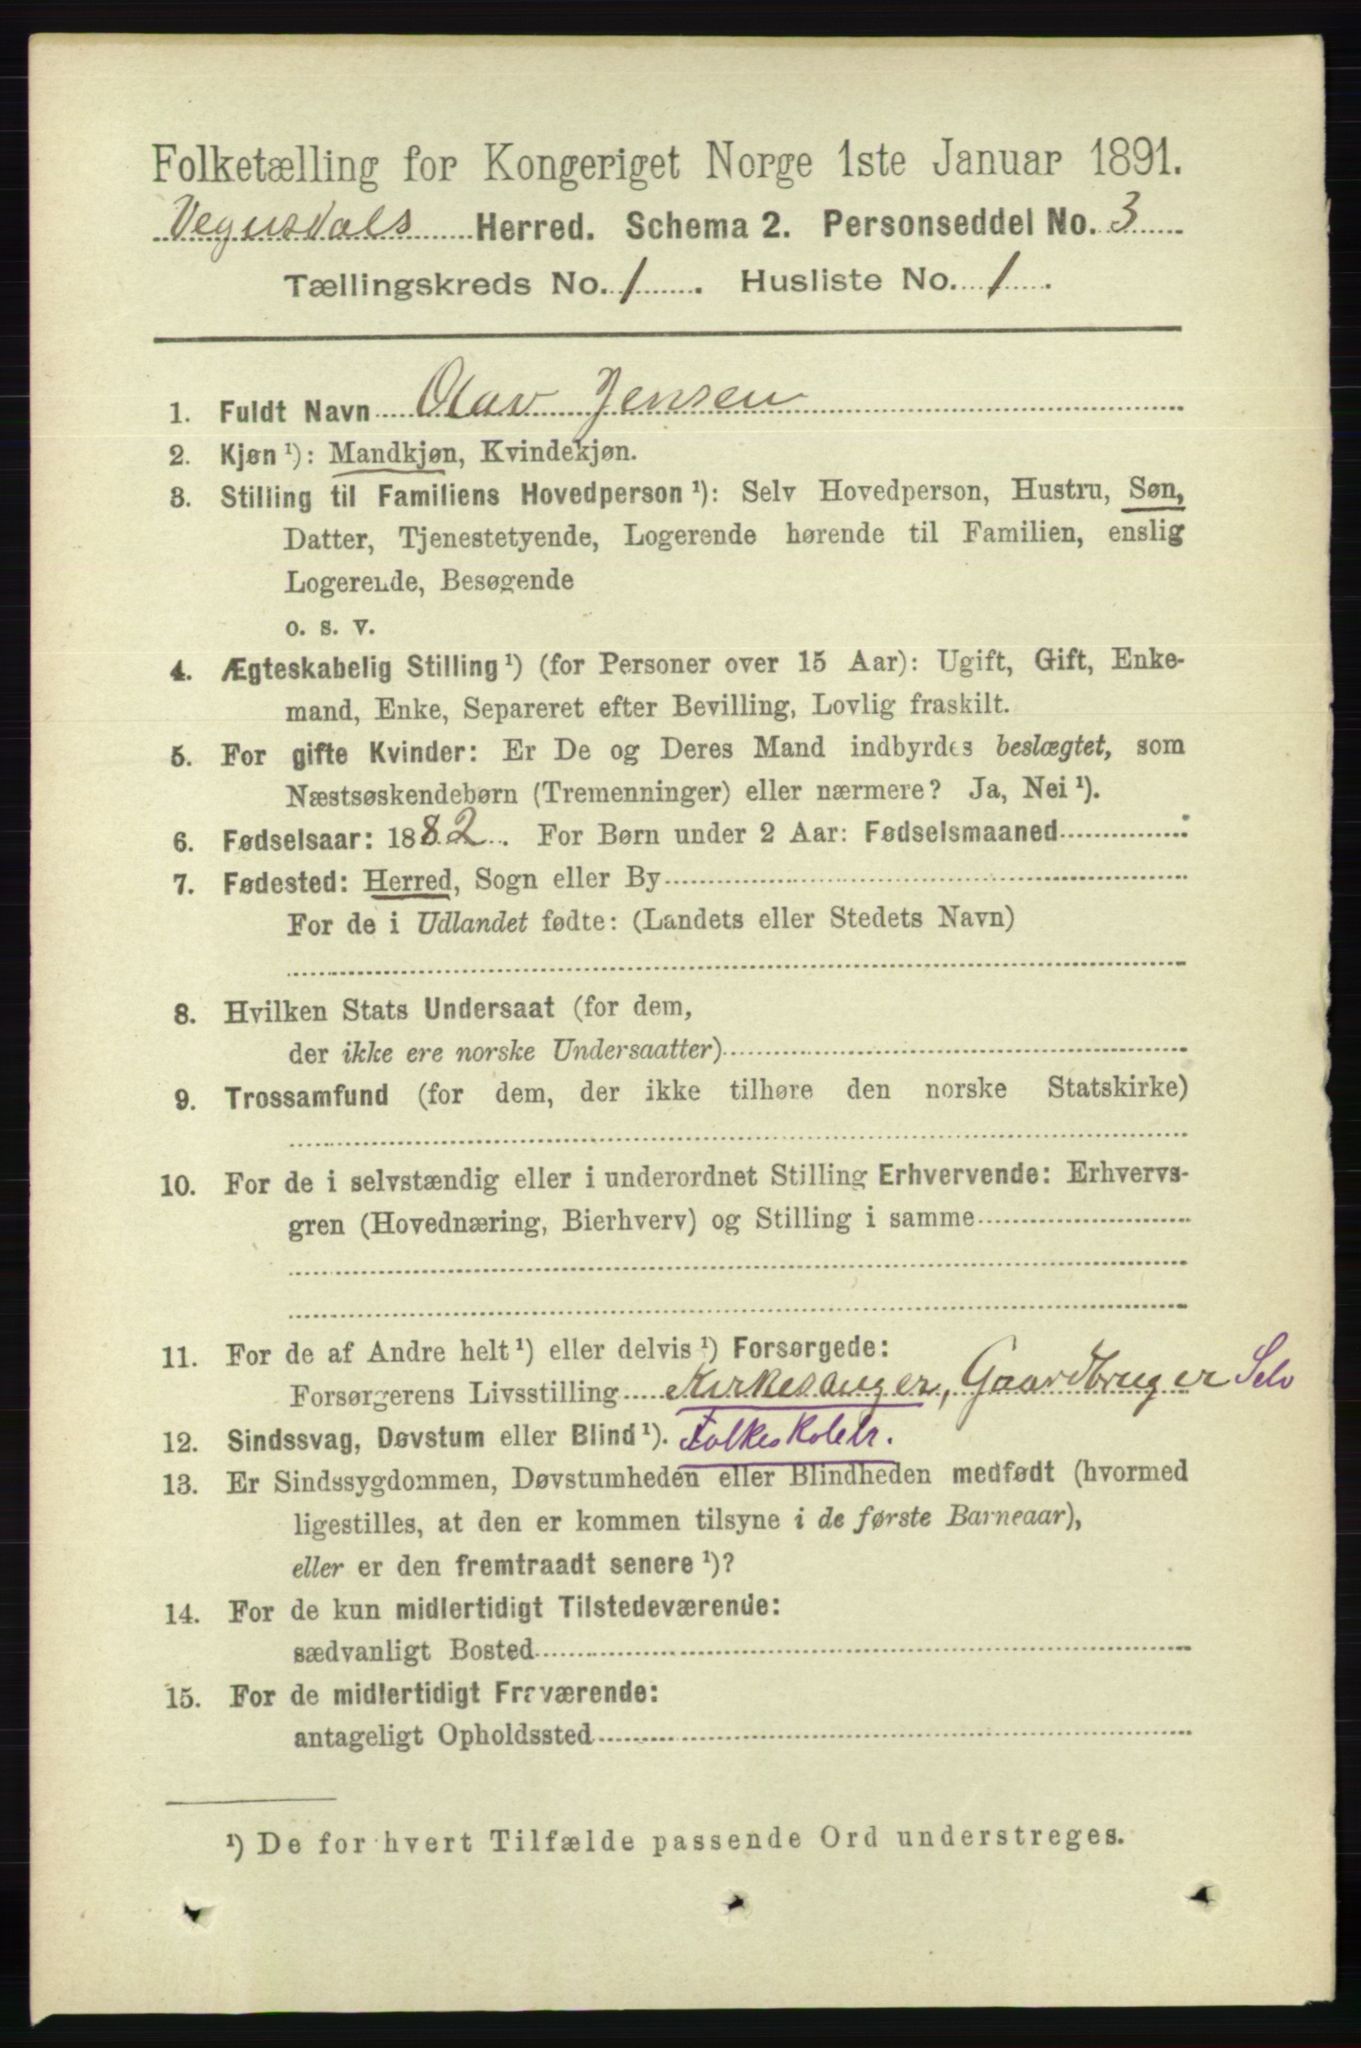 Folketælling for Kongeriget Norge 1ste Januar 1891.
Vegusdals Herred. Schema 2. Personseddel No. 3
Tællingskreds No. 1. Husliste No. 1.
1. Fuldt Navn Olav Jensen
2. Kjøn ¹): Mandkjøn, Kvindekjøn.
3. Stilling til Familiens Hovedperson ¹): Selv Hovedperson, Hustru, Søn,
Datter, Tjenestetyende, Logerende hørende til Familien, enslig
Logerende, Besøgende
o. s. v.
4. Ægteskabelig Stilling ¹) (for Personer over 15 Aar): Ugift, Gift, Enke-
mand, Enke, Separeret efter Bevilling, Lovlig fraskilt.
5. For gifte Kvinder: Er De og Deres Mand indbyrdes beslægtet, som
Næstsøskendebørn (Tremenninger) eller nærmere? Ja, Nei ¹).
6. Fødselsaar: 1882. For Børn under 2 Aar: Fødselsmaaned
7. Fødested: Herred, Sogn eller By
For de i Udlandet fødte: (Landets eller Stedets Navn)
8. Hvilken Stats Undersaat (for dem,
der ikke ere norske Undersaatter)
9. Trossamfund (for dem, der ikke tilhøre den norske Statskirke)
10. For de i selvstændig eller i underordnet Stilling Erhvervende: Erhvervs-
gren (Hovednæring, Bierhverv) og Stilling i samme
11. For de af Andre helt ¹) eller delvis ¹) Forsørgede:
Forsørgerens Livsstilling Kirkesanger, Gaardbruger Selv
12. Sindssvag, Døvstum eller Blind ¹). Folkeskolelr.
13. Er Sindssygdommen, Døvstumheden eller Blindheden medfødt (hvormed
ligestilles, at den er kommen tilsyne i de første Barneaar),
eller er den fremtraadt senere ¹)?
14. For de kun midlertidigt Tilstedeværende:
sædvanligt Bosted
15. For de midlertidigt Fraværende:
antageligt Opholdssted
¹) De for hvert Tilfælde passende Ord understreges.